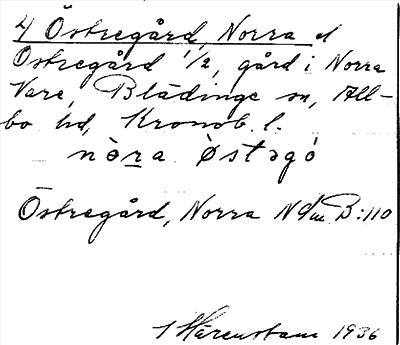 4) Östregård, Norra el
Östregård 1/2, gård i Norra
Vare, Blädinge sn, All-
bo hd, Kronob. l.
nò̱ra Östəgó
Östregård, Norra Ndm B:110
1936